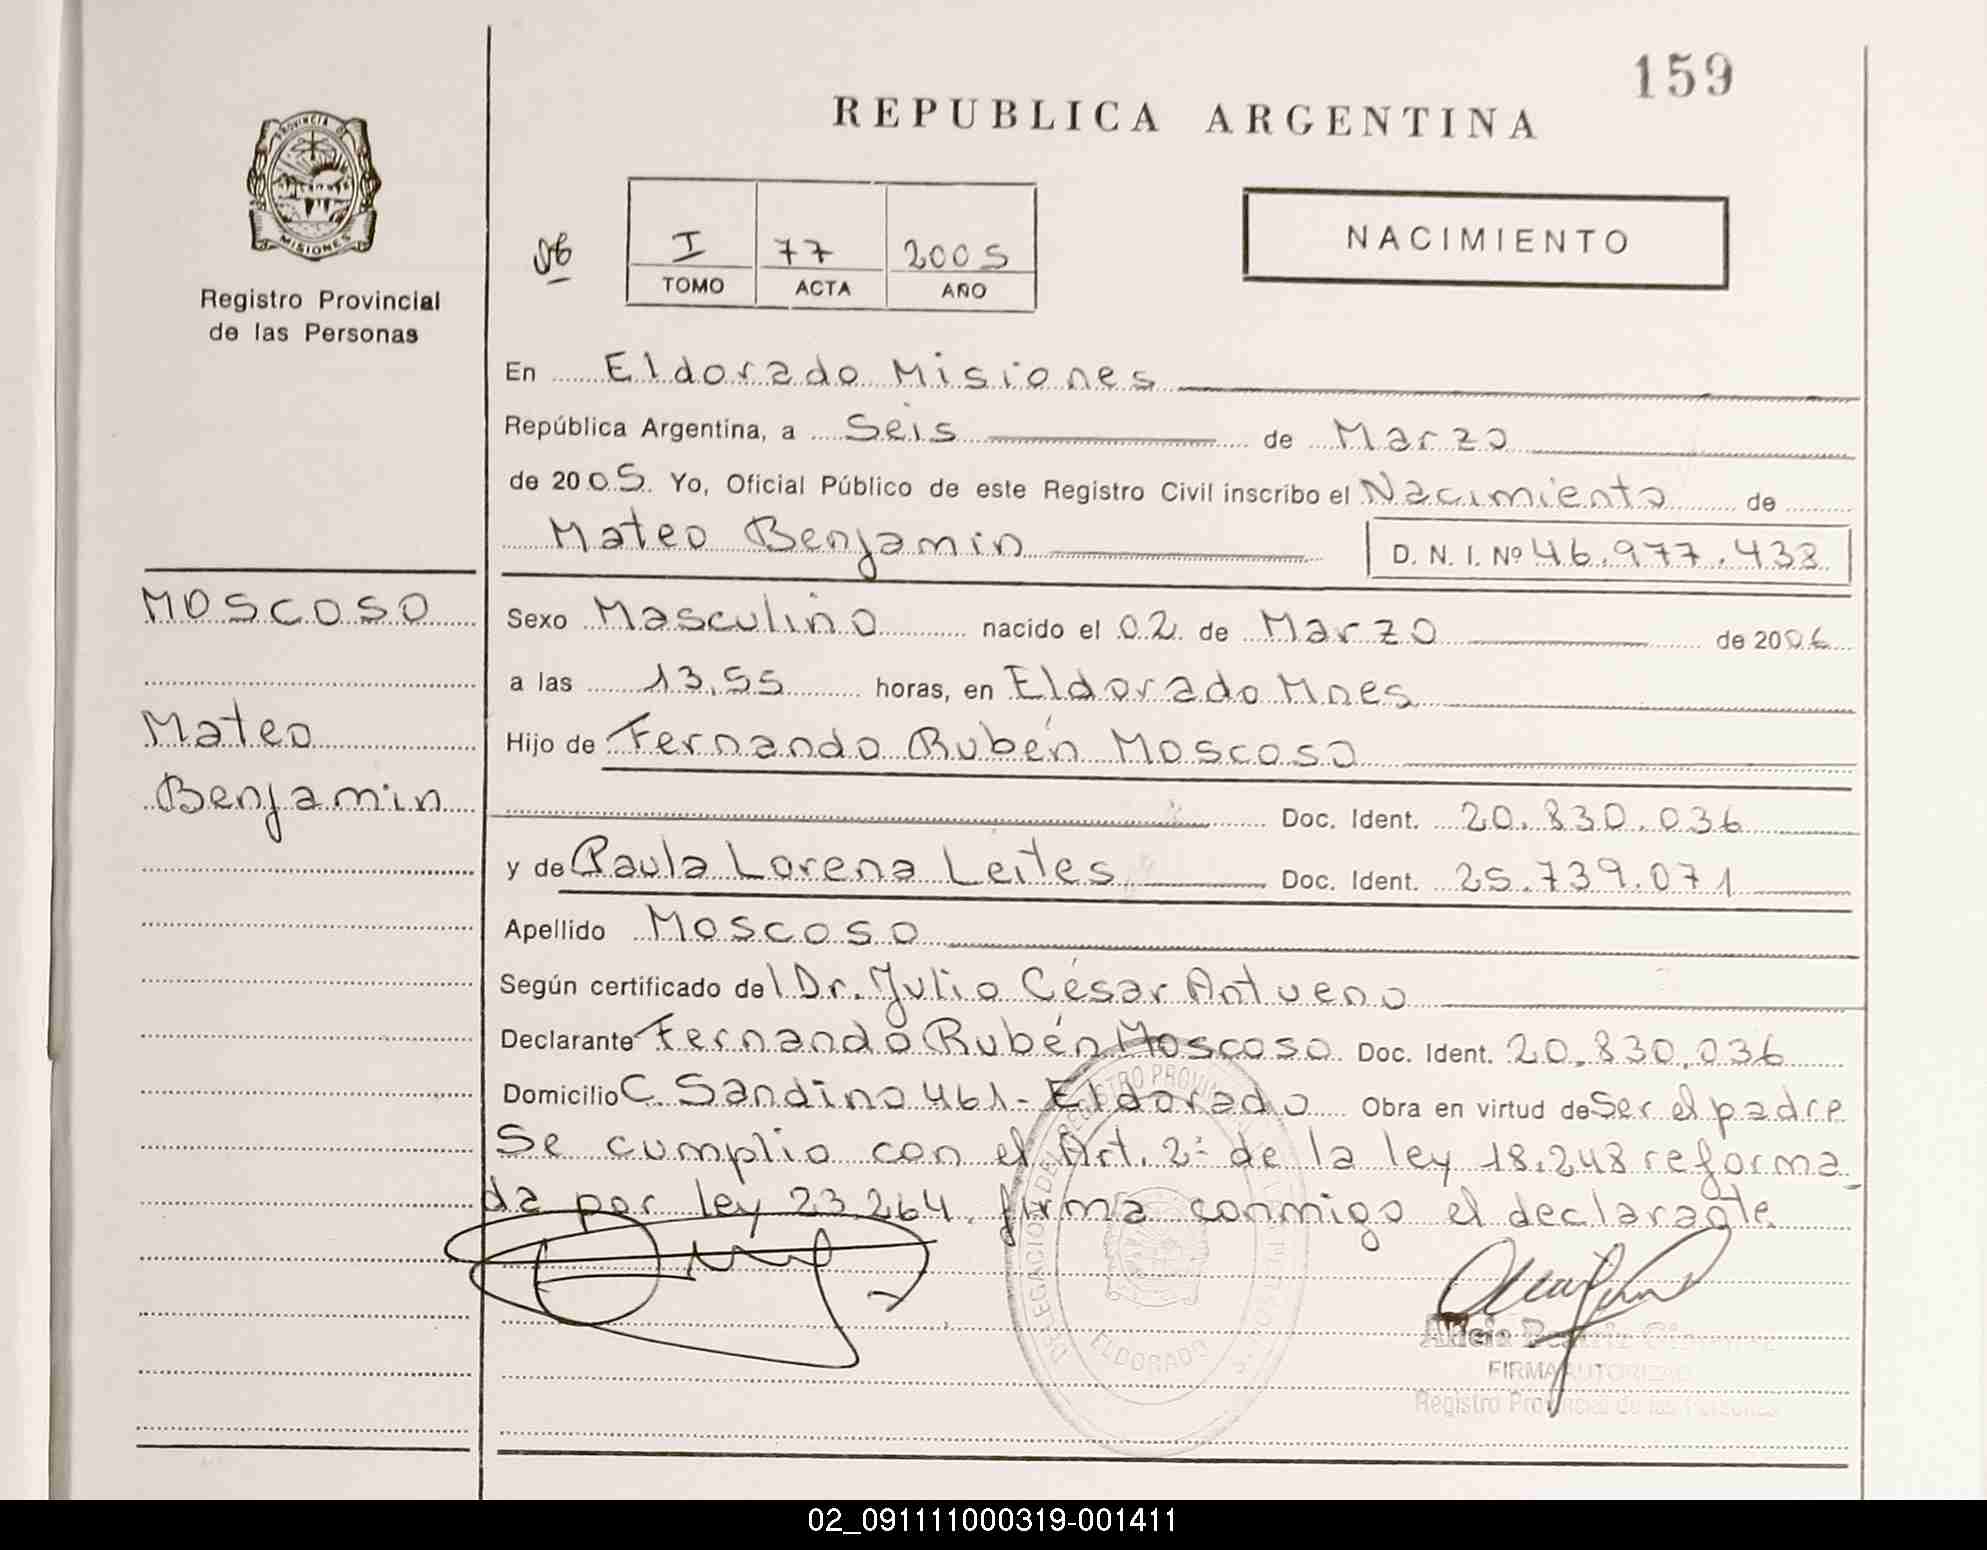 159
REPUBLICA ARGENTINA
PROVINCIA DE
MISIONES
Registro Provincial
de las Personas
I 77 2005
TOMO ACTA AÑO
NACIMIENTO
En Eldorado Misiones
República Argentina, a Seis de Marzo
de 2005. Yo, Oficial Público de este Registro Civil inscribo el Nacimiento de
Mateo Benjamin D. N. I. Nº 46.977.438
MOSCOSO
Sexo Masculino nacido el 02 de Marzo de 2006
a las 13,55 horas, en Eldorado Mnes
Mateo
Hijo de Fernando Rubén Moscoso
Benjamin
Doc. Ident. 20.830.036
y de Paula Lorena Leites Doc. Ident. 25.739.071
Apellido Moscoso
Según certificado del Dr. Julio César Antueno
Declarante Fernando Rubén Moscoso Doc. Ident. 20.830.036
Domicilio C. Sandino 461 - Eldorado Obra en virtud de Ser el padre
Se cumplio con el Art. 2º de la ley 18.248 reforma_
da por ley 23.264. firma conmigo el declarante
DELEGACION DEL REGISTRO PROVINCIAL
ELDORADO
Alicia Beatriz
FIRMA AUTORIZADA
Registro Provincial de las Personas
02_091111000319-001411